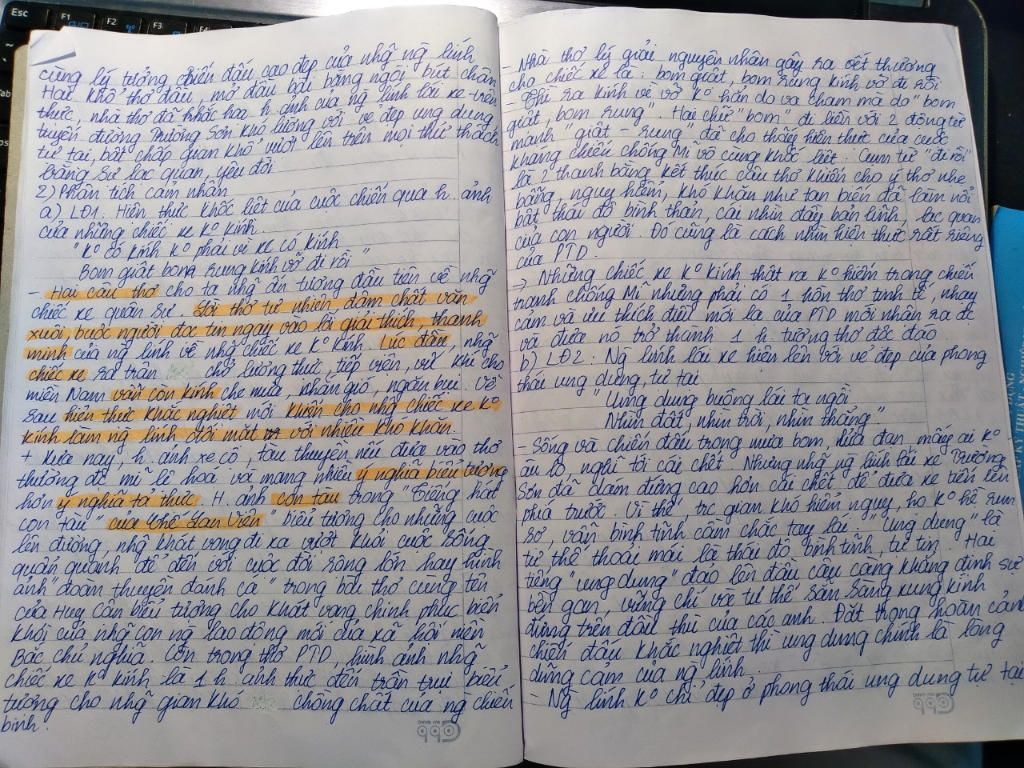 Esc
F1
F2
F3
F4
Tab
cùng lý tưởng chiến đấu cao đẹp của nhữ ng lính
Hai khổ thơ đầu, mở đầu bài bằng ngòi bút chân
thực, nhà thơ đã khắc hoạ h. ảnh của ng lính lái xe trên
tuyến đường Trường Sơn khó lường với vẻ đẹp ung dung
tự tại, bất chấp gian khổ vượt lên trên mọi thử thách
bằng sự lạc quan, yêu đời
2) Phân tích cảm nhận
a) LĐ1: Hiện thực khốc liệt của cuộc chiến qua h. ảnh
của những chiếc xe Kº kính.
"Kº có kính Kº phải vì xe có kính
Bom giật bom rung kính vỡ đi rồi"
- Hai câu thơ cho ta nhữ ấn tượng đầu tiên về nhữ
chiếc xe quân sự. Lời thơ tự nhiên, đậm chất văn
xuôi, buộc người đọc tin ngay vào lời giải thích, thanh
minh của ng lính về nhữ chiếc xe Kº kính. Lúc đầu, nhữ
chiếc xe ra trận chở lương thực, tiếp viện, vũ khí cho
miền Nam vẫn còn kính che mưa, chắn gió, ngăn bụi. Về
sau hiện thực khắc nghiệt mới khiến cho nhữ chiếc xe Kº
kính làm ng lính đối mặt với nhiều khó khăn.
+ Xưa nay, h. ảnh xe cộ, tàu thuyền nếu đưa vào thơ
thường đc mĩ lệ hoá và mang nhiều ý nghĩa biểu tượng
hơn ý nghĩa tả thực. H. ảnh con tàu trong "Tiếng hát
con tàu" của Chế Lan Viên" biểu tượng cho những cuộc
lên đường, nhữ khát vọng đi xa vượt khỏi cuộc sống
quẩn quanh để đến với cuộc đời rộng lớn hay hình
ảnh "đoàn thuyền đánh cá" trong bài thơ cùng tên
của Huy Cận biểu tượng cho khát vọng chinh phục biển
khơi của nhữ con ng lao động mới của xã hội miền
Bắc chủ nghĩa. Còn trong thơ PTD, hình ảnh nhữ
chiếc xe Kº kính là 1 h. ảnh thực đến trần trụi biểu
tượng cho nhữ gian khó chồng chất của ng chiến
binh.
- Nhà thơ lý giải nguyên nhân gây ra vết thương
cho chiếc xe là: bom giật, bom rung kính vỡ đi rồi
- Thì ra kính vỡ vỡ Kº hẳn do va chạm mà do "bom
giật, bom rung". Hai chữ "bom" đi liền với 2 động từ
mạnh "giật - rung" đã cho thấy hiện thực của cuộc
kháng chiến chống Mĩ vô cùng khốc liệt. Cụm từ "đi rồi"
là 2 thanh bằng kết thúc câu thơ khiến cho ý thơ nhẹ
bẫng, nguy hiểm, khó khăn như tan biến đã làm nổi
bật thái độ bình thản, cái nhìn đầy bản lĩnh, lạc quan
của con người. Đó cũng là cách nhìn hiện thực rất riêng
của PTD.
→ Những chiếc xe Kº kính thật ra Kº hiếm trong chiến
tranh chống Mĩ nhưng phải có 1 hồn thơ tinh tế, nhạy
cảm và ưa thích đùa mới là của PTD mới nhận ra đc
và đưa nó trở thành 1 h. tượng thơ độc đáo.
b) LĐ2: Ng lính lái xe hiện lên với vẻ đẹp của phong
thái ung dung, tự tại.
"Ung dung buồng lái ta ngồi
Nhìn đất, nhìn trời, nhìn thẳng"
- Sống và chiến đấu trong mưa bom, lửa đạn mấy ai Kº
âu lo nghĩ tới cái chết. Nhưng nhữ ng lính lái xe Trường
Sơn đã dám đứng cao hơn cái chết để đưa xe tiến lên
phía trước. Vì thế trc gian khó hiểm nguy, họ Kº hề run
sợ, vẫn bình tĩnh cầm chắc tay lái. "Ung dung" là
tư thế thoải mái là thái độ bình tĩnh, tự tin. Hai
tiếng "ung dung" đảo lên đầu câu càng khẳng định sự
bền gan, vững chí và tư thế sẵn sàng xung kính
đứng trên đầu thù của các anh. Đặt trong hoàn cảnh
chiến đấu khắc nghiệt thì ung dung chính là lòng
dũng cảm của ng lính.
- Ng lính Kº chỉ đẹp ở phong thái ung dung tự tại